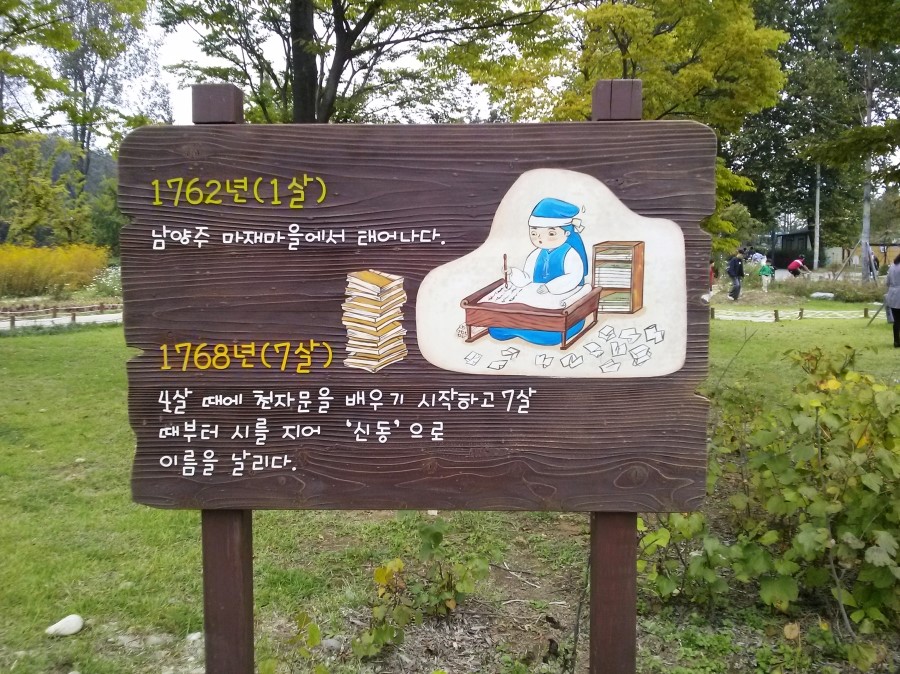 1762년(1살)
남양주 마재마을에서 태어나다.
1768년(7살)
4살 때에 천자문을 배우기 시작하고 7살
때부터 시를 지어 ‘신동’으로
이름을 날리다.